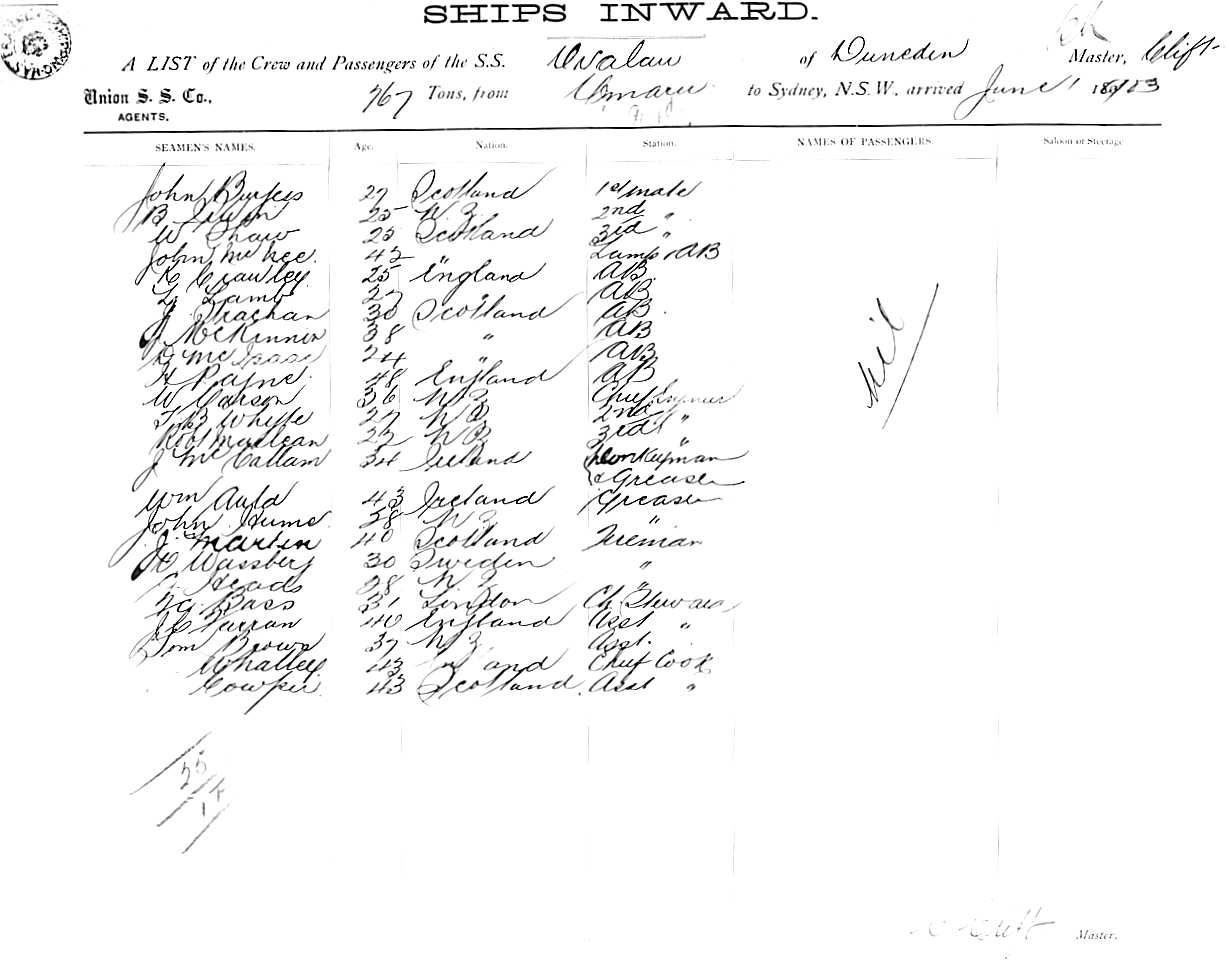 SHIPS INWARD.
A LIST of the Crew and Passengers of the S.S. Ovalau of Dunedin Master, Clift
Union S. S. Co., 767 Tons, from Omaru to Sydney, N.S.W., arrived June 1 1903
AGENTS.
SEAMEN'S NAMES. Age. Nation. Station. NAMES OF PASSENGERS. Saloon or Steerage
John 27 Scotland 1st mate
B 25 N.Z. 2nd "
W Shaw 25 Scotland 3rd "
John McKee. 42 Lamps AB
K Crawley 25 England AB
L Lamb 27 " AB
J Strachan 30 Scotland AB
J McKinnon 38 " AB
McIsaac 24 " AB
H Payne. 48 England AB
W Carson 36 N Z Chief Engineer
Whyte 27 N Z 2nd "
Robt MacLean 22 N Z 3rd "
J McCallam 34 Ireland Donkeyman
& Greaser
Wm Auld 43 Ireland Greaser
John Hume 28 N Z. "
J. Martin 40 Scotland Fireman
Wassberg 30 Sweden "
Heads 28 N Z "
Bass 31 London Ch. Steward
J C Farran 40 England Asst "
Tom Brown 37 N Z. Asst.
Whalley 43 England Chief Cook
Cowper 43 Scotland. Asst "
Nil
25
Clift Master.